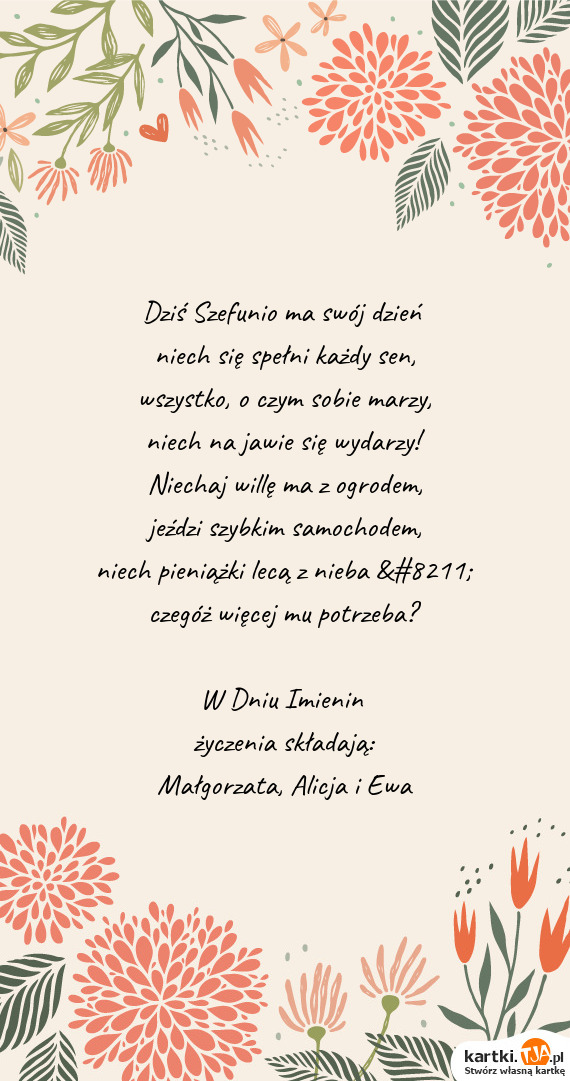 Dziś Szefunio ma swój dzień
niech się spełni każdy sen,
wszystko, o czym sobie marzy,
niech na jawie się wydarzy!
Niechaj willę ma z ogrodem,
jeździ szybkim samochodem,
niech pieniążki lecą z nieba &#8211;
czegóż więcej mu potrzeba?
W Dniu Imienin
życzenia składają:
Małgorzata, Alicja i Ewa
kartki.TJA.pl
Stwórz własną kartkę